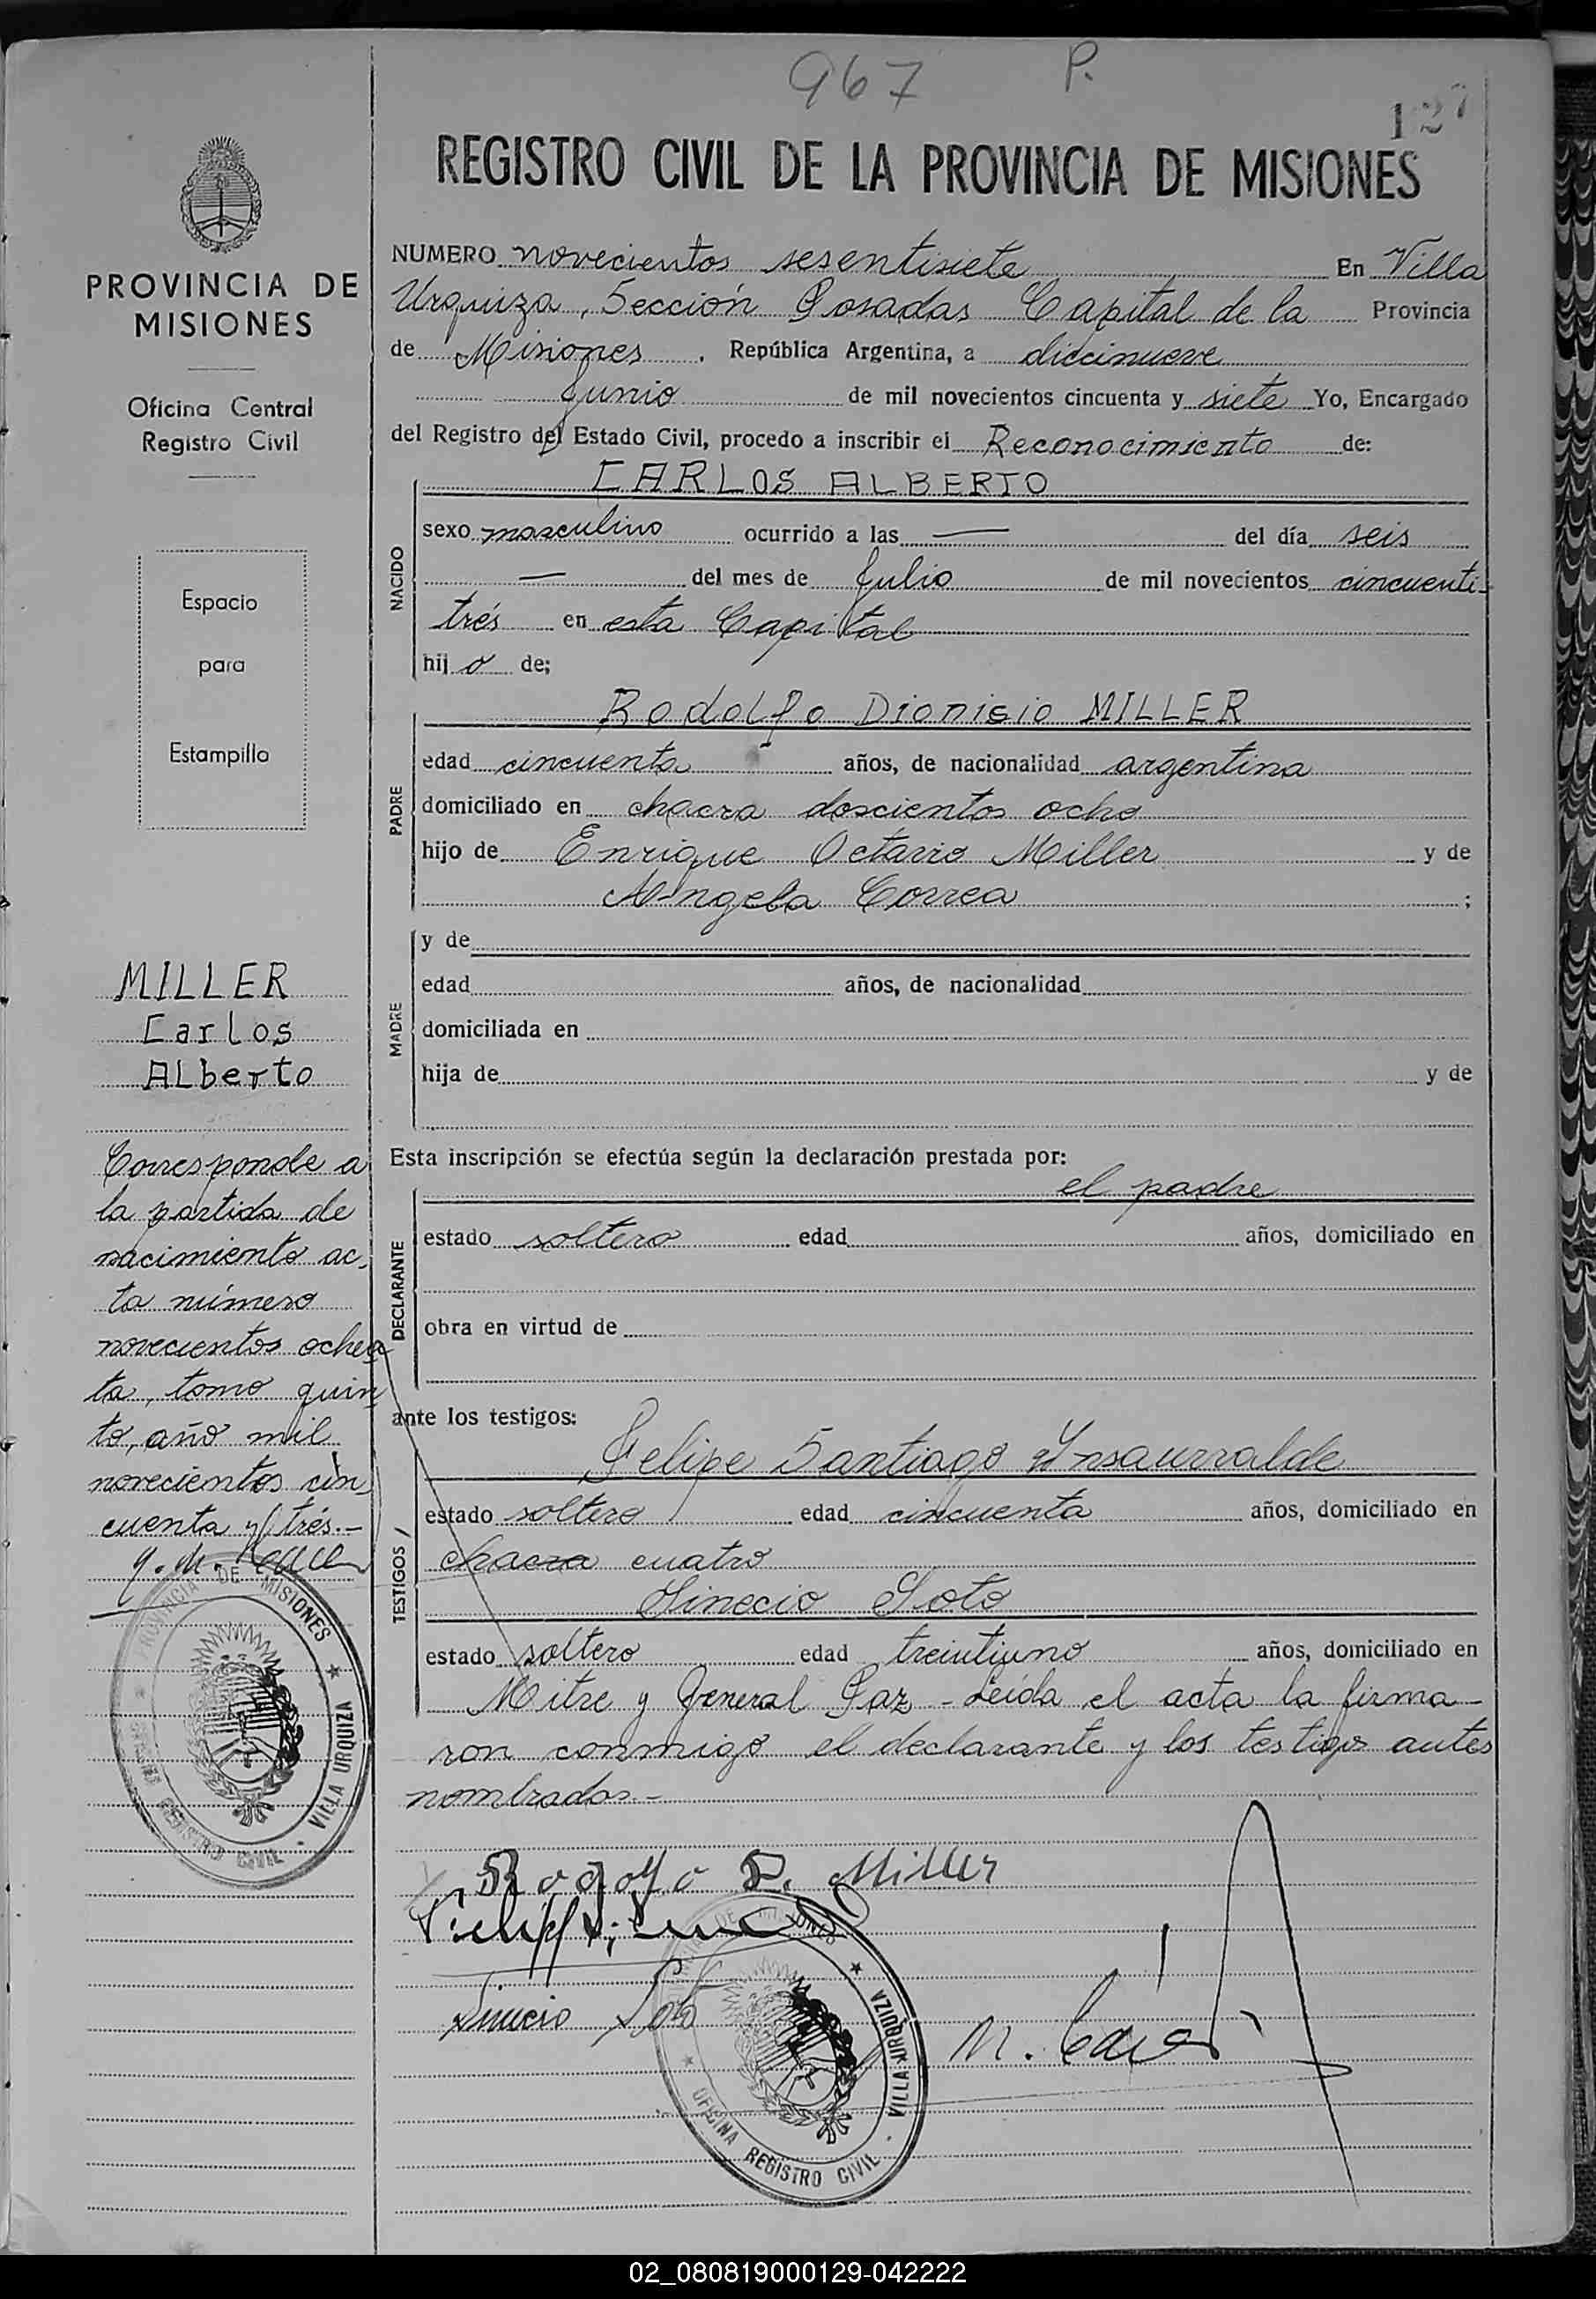 967 P.
127
REGISTRO CIVIL DE LA PROVINCIA DE MISIONES
NUMERO novecientos sesentisiete En Villa
Urquiza, Sección Posadas Capital de la Provincia
de Misiones . República Argentina, a diecinueve
Junio de mil novecientos cincuenta y siete Yo, Encargado
del Registro del Estado Civil, procedo a inscribir el Reconocimiento de:
NACIDO
CARLOS ALBERTO
sexo masculino ocurrido a las — del día seis
— del mes de Julio de mil novecientos cincuenti-
trés en esta Capital
hijo de;
PADRE
Rodolfo Dionisio MILLER
edad cincuenta años, de nacionalidad argentina
domiciliado en chacra doscientos ocho
hijo de Enrique Octavio Miller y de
Angela Correa ;
MADRE
y de
edad años, de nacionalidad
domiciliada en
hija de y de
Esta inscripción se efectúa según la declaración prestada por:
DECLARANTE
el padre
estado soltero edad años, domiciliado en
obra en virtud de
ante los testigos:
TESTIGOS
Felipe Santiago Ynsaurralde
estado soltero edad cincuenta años, domiciliado en
chacra cuatro
Sinecio Soto
estado soltero edad treintiuno años, domiciliado en
Mitre y General Paz - Leída el acta la firma-
ron conmigo el declarante y los testigos antes
nombrados.-
Rodolfo D. Miller
Sinecio Soto
PROVINCIA DE MISIONES
OFICINA REGISTRO CIVIL
VILLA URQUIZA
PROVINCIA DE
MISIONES
Oficina Central
Registro Civil
Espacio
para
Estampillo
MILLER
Carlos
ALberto
Corresponde a
la partida de
nacimiento ac-
ta número
novecientos ochen
ta, tomo quin
to, año mil
novecientos cin
cuenta y trés.-
PROVINCIA DE MISIONES
OFICINA REGISTRO CIVIL
VILLA URQUIZA
02_080819000129-042222